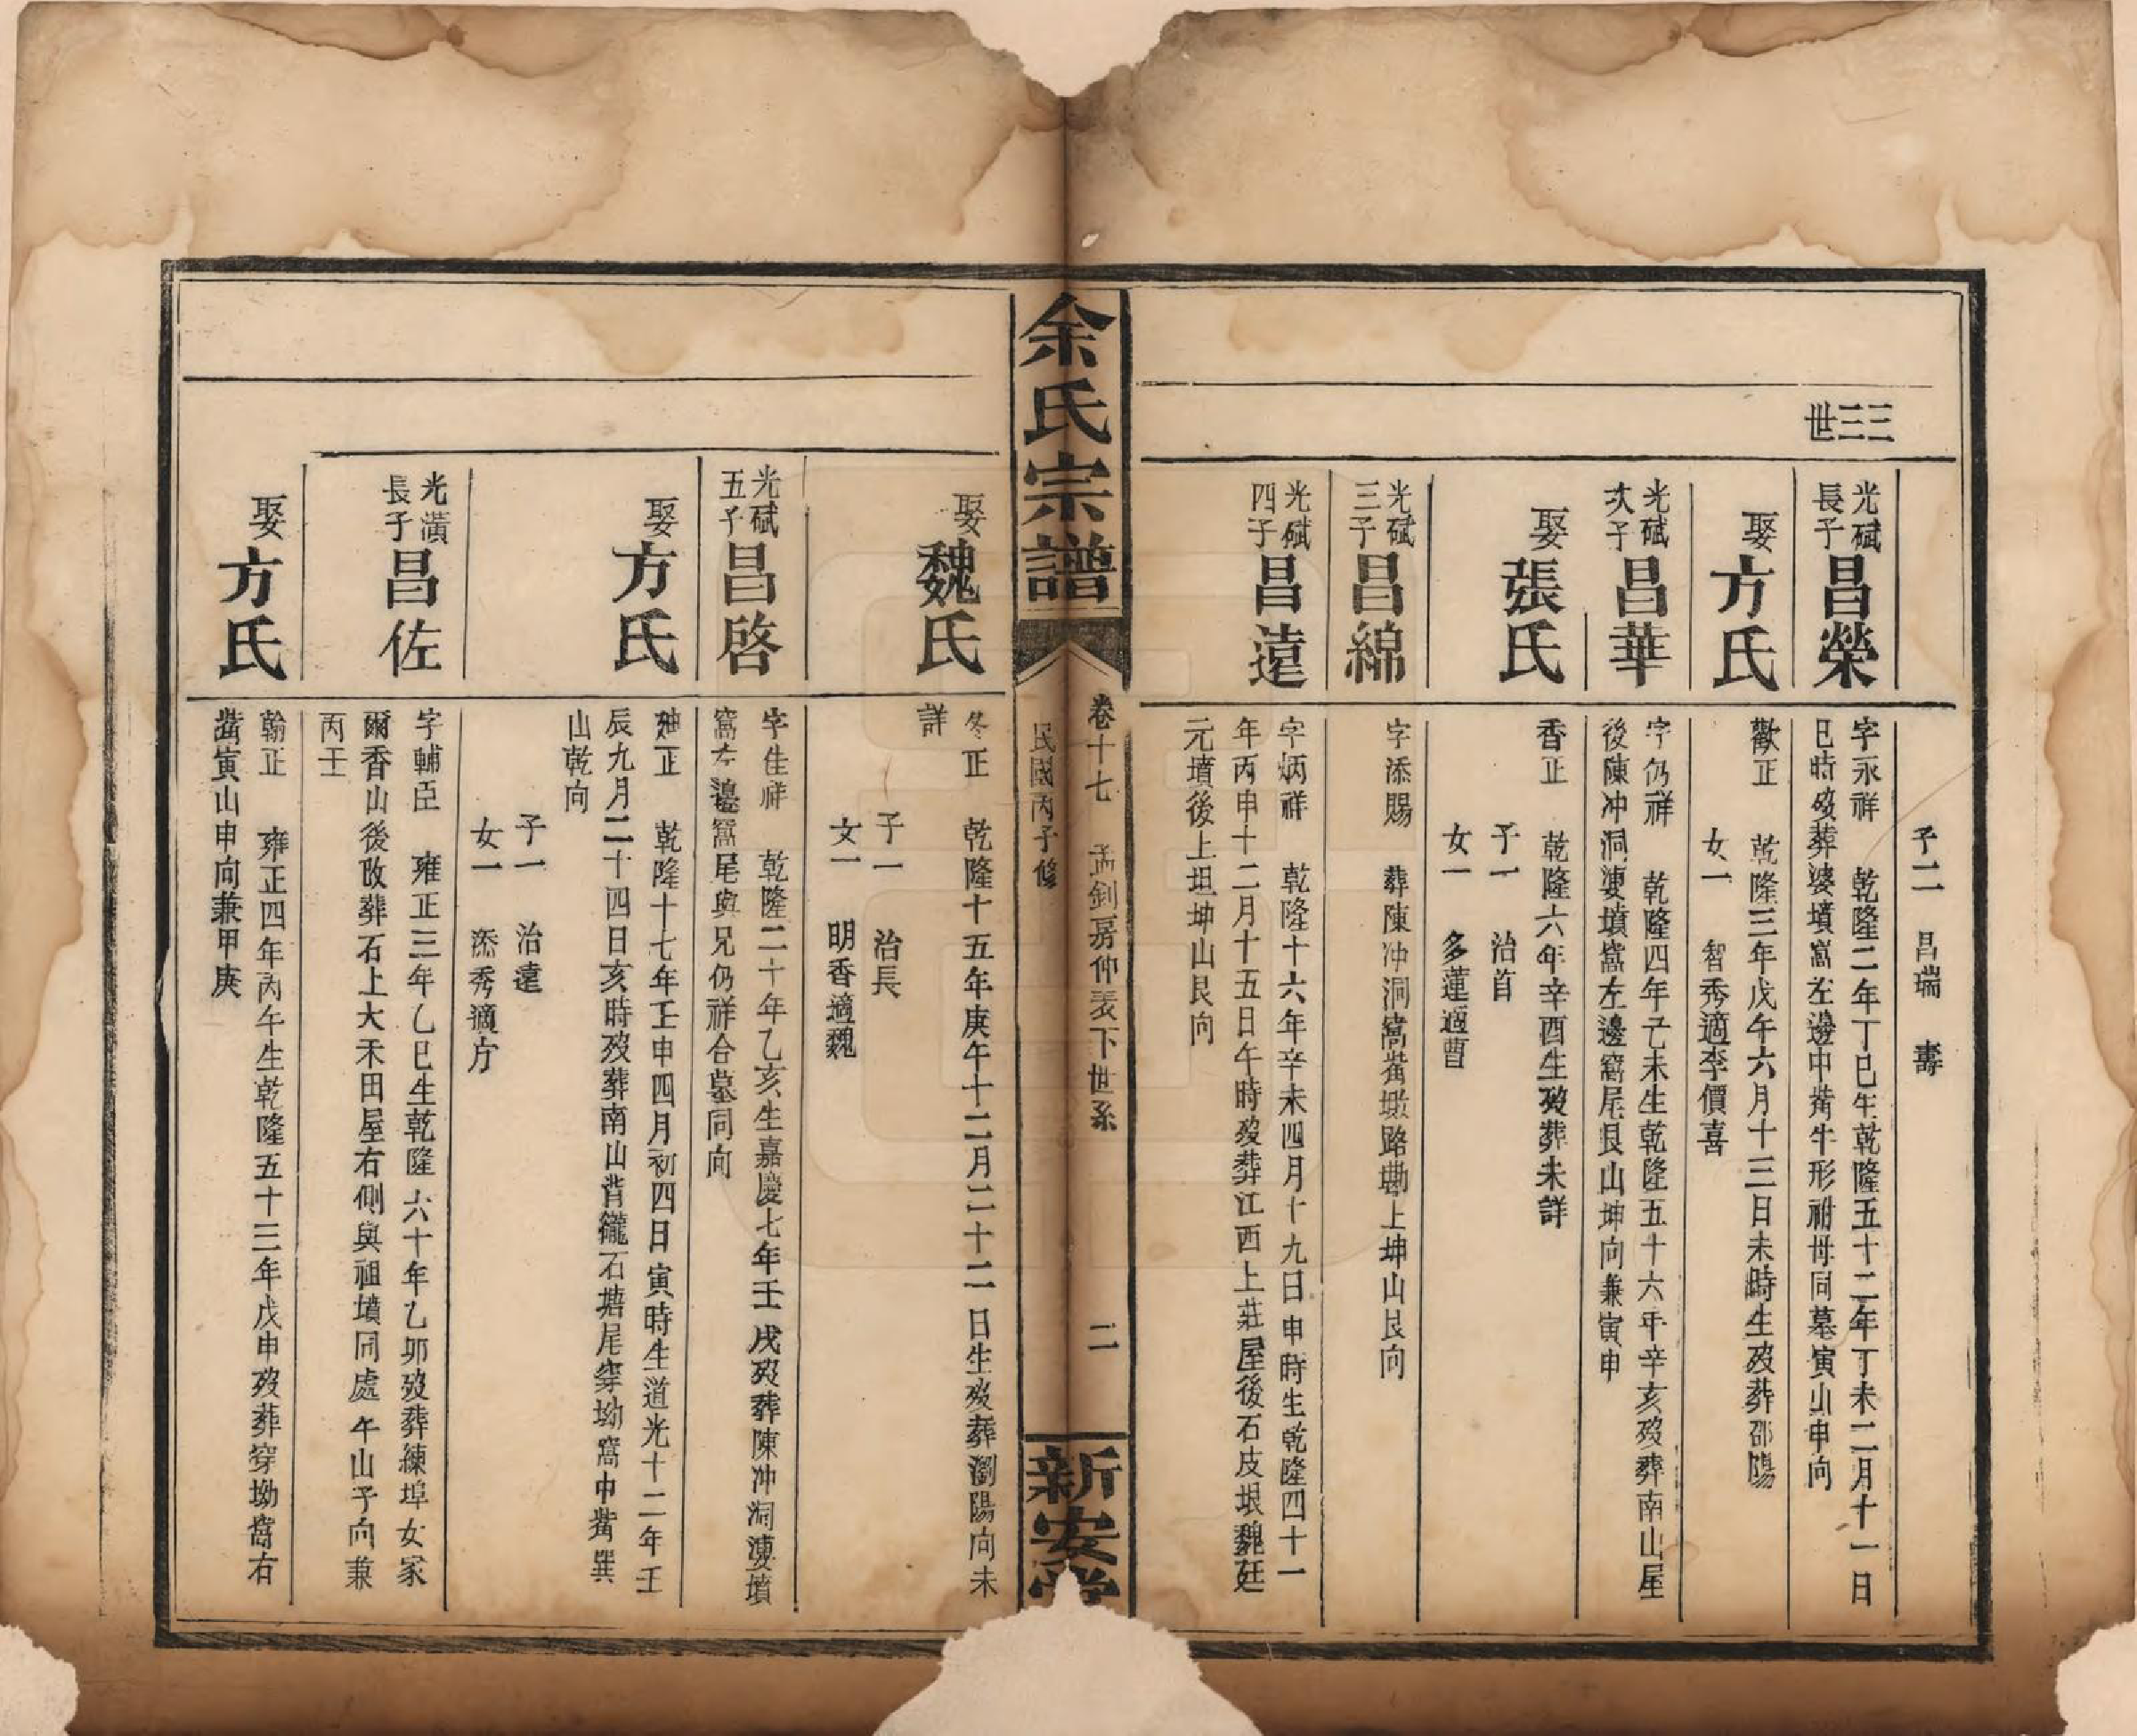 三三世
子二 昌端 壽
光碔長子昌榮
字永祥 乾隆二年丁巳生乾隆五十二年丁未二月十一日
巳時歿葬婆墳窩左邊中嘴牛形祔母同墓寅山申向
娶方氏
歡正 乾隆三年戊午六月十三日未時生歿葬邵陽
女一 智秀適李價喜
光碔次子昌華
字仍祥 乾隆四年己未生乾隆五十六年辛亥歿葬南山屋
後陳冲洞㛐墳窩左邊窩尾艮山坤向兼寅申
娶張氏
香正 乾隆六年辛酉生歿葬未詳
子一 治首
女一 多蓮適曹
光碔三子昌綿
字添賜 葬陳冲洞窩嘴墩路墈上坤山艮向
光碔四子昌遠
字炳祥 乾隆十六年辛未四月十九日申時生乾隆四十一
年丙申十二月十五日午時歿葬江西上莊屋後石皮垠魏廷
元墳後上坦坤山艮向
余氏宗譜
卷十七 孟釗房仲表下世系 二
民國丙子修
新安堂
娶魏氏
冬正 乾隆十五年庚午十二月二十二日生歿葬瀏陽向未
詳
子一 治長
女一 明香適魏
光碔五子昌啓
字佳祥 乾隆二十年乙亥生嘉慶七年壬戌歿葬陳冲洞㛐墳
窩左邊窩尾與兄仍祥合墓同向
娶方氏
正 乾隆十七年壬申四月初四日寅時生道光十二年壬
辰九月二十四日亥時歿葬南山背石塘尾穿坳窩中嘴巽
山乾向
子一 治遠
女一 添秀適方
光潢長子昌佐
字輔臣 雍正三年乙巳生乾隆六十年乙卯歿葬練埠女家
爾香山後改葬石上大禾田屋右側與祖墳同處午山子向兼
丙壬
娶方氏
翰正 雍正四年丙午生乾隆五十三年戊申歿葬穿坳窩右
嘴寅山申向兼甲庚